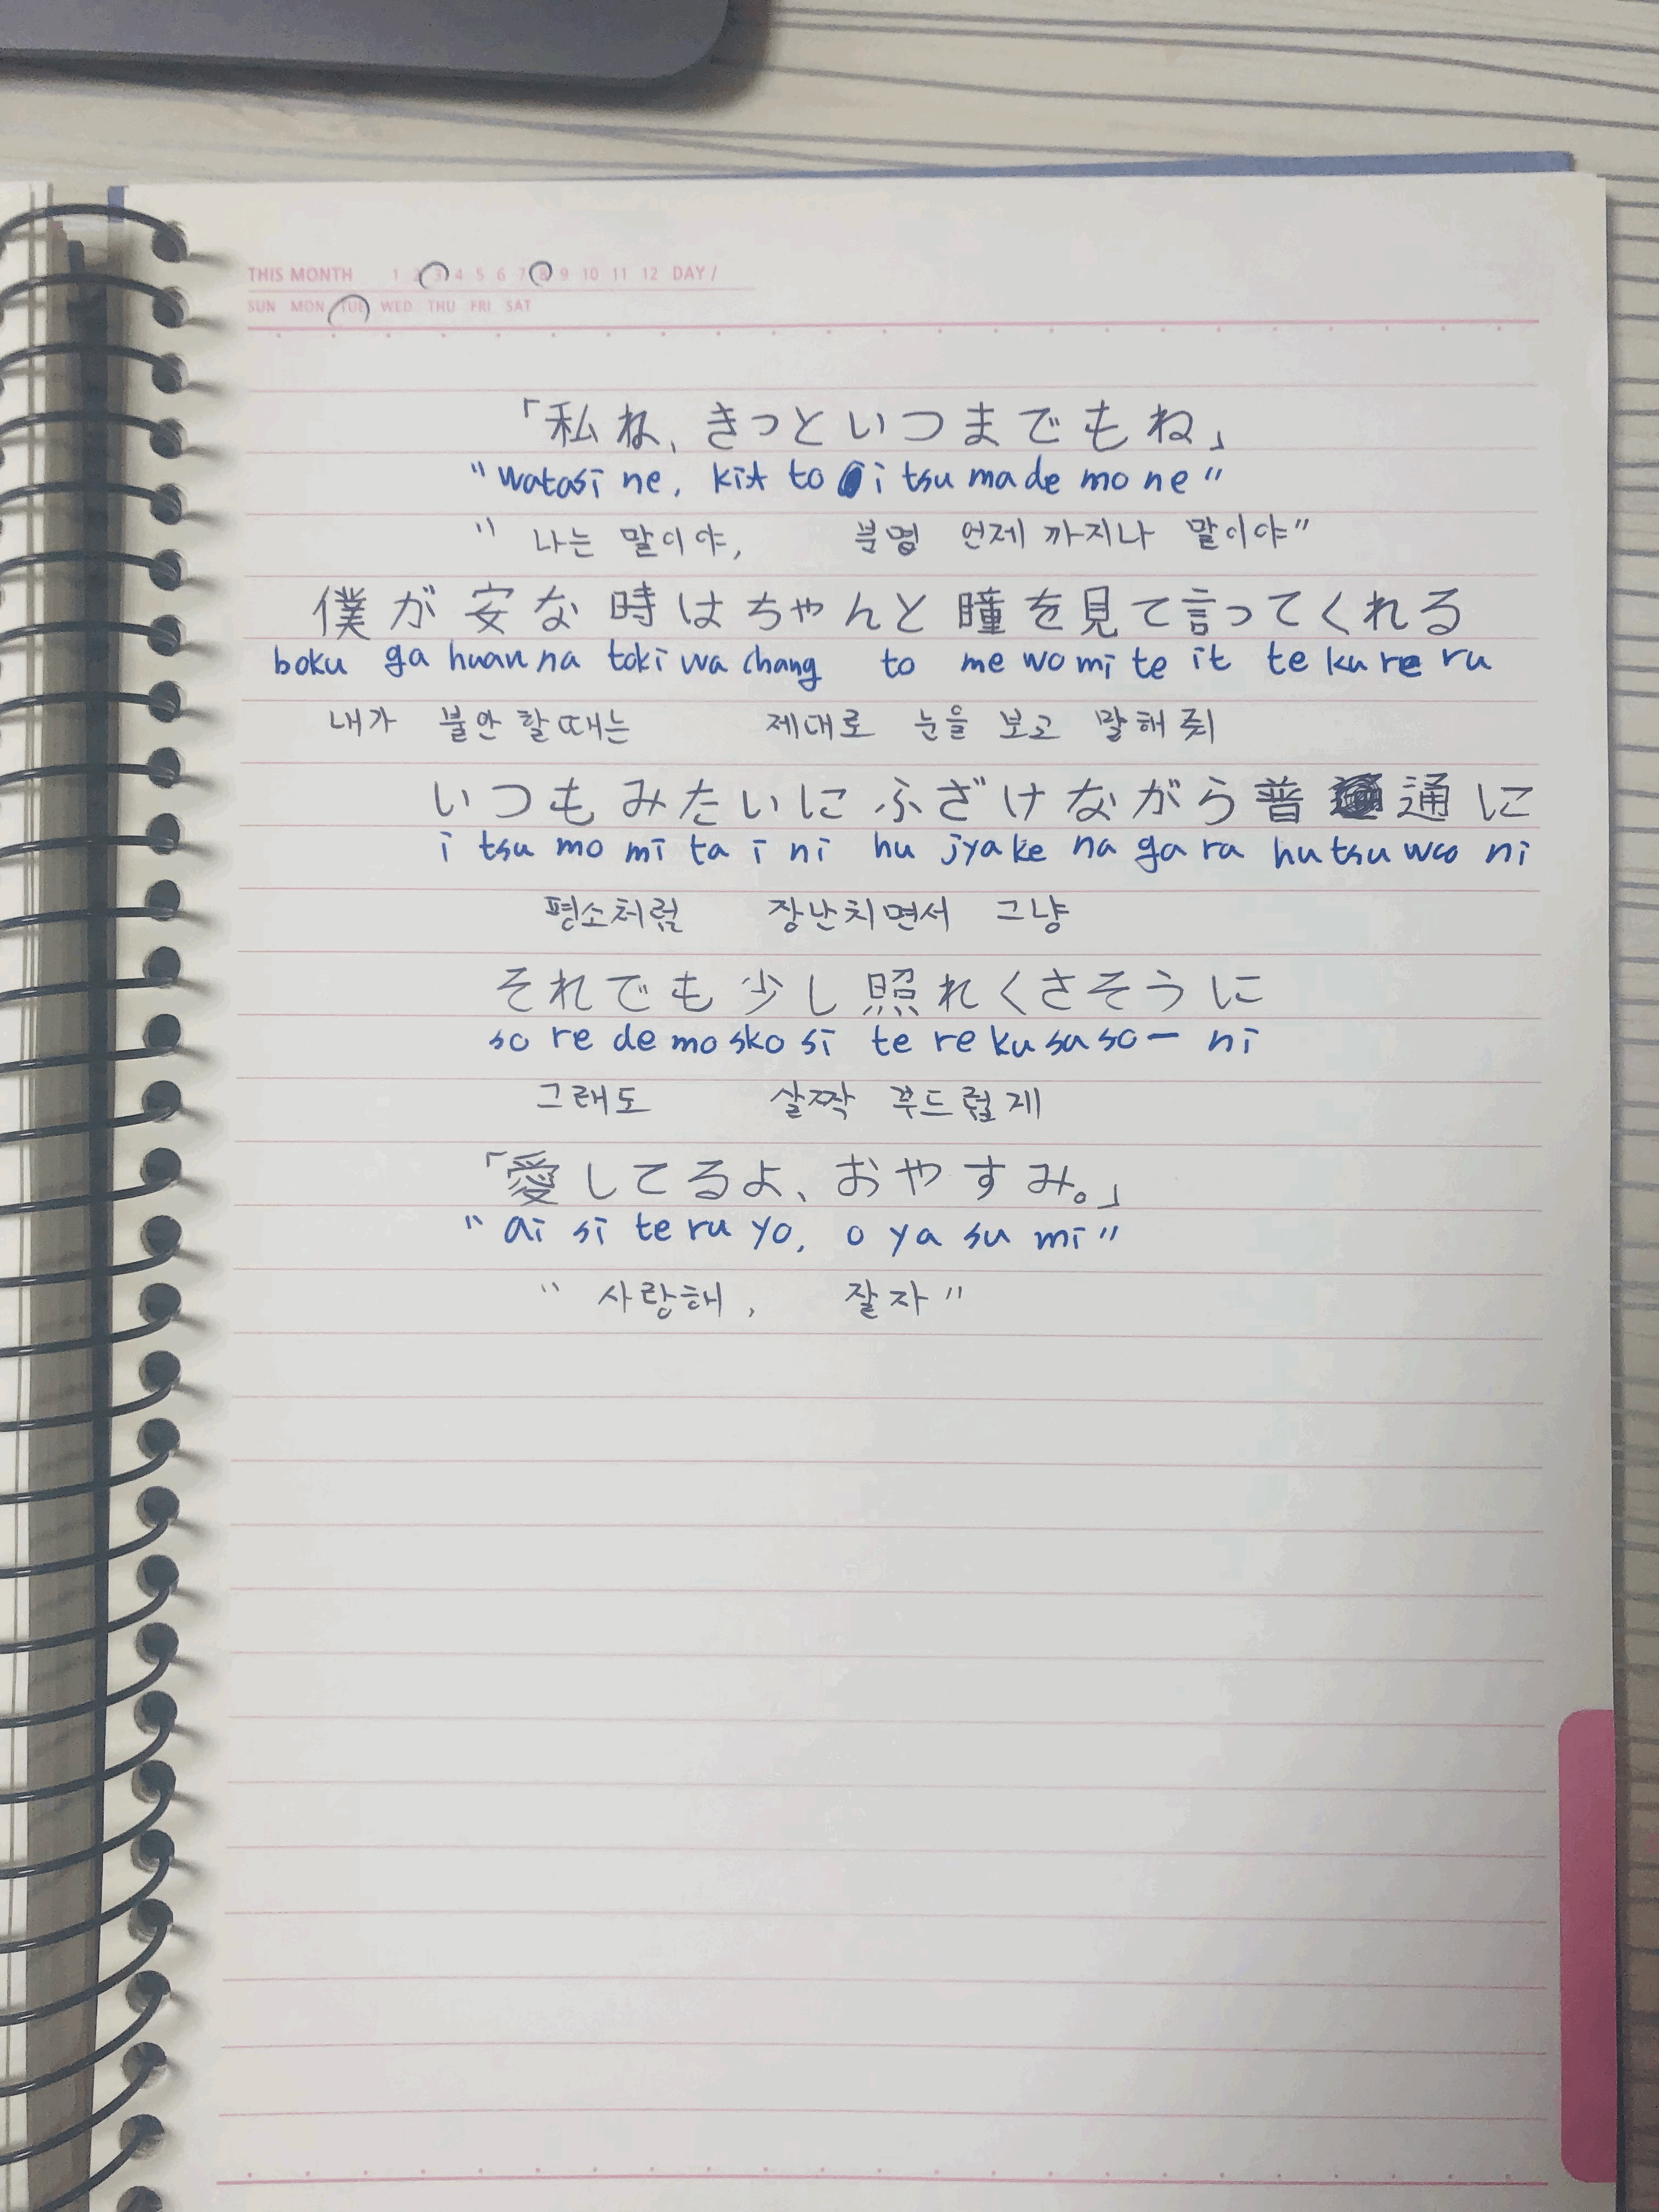 THIS MONTH 1 2 3 4 5 6 7 8 9 10 11 12 DAY /
SUN MON TUE WED THU FRI SAT
「私ね、きっといつまでもね」
"watasi ne, kit to i tsu ma de mo ne"
"나는 말이야, 분명 언제 까지나 말이야"
僕が安な時はちゃんと瞳を見て言ってくれる
boku ga huan na toki wa chang to me wo mi te it te ku re ru
내가 불안 할 때는 제대로 눈을 보고 말해 줘
いつもみたいにふざけながら普通に
i tsu mo mi ta i ni hu jya ke na ga ra hu tsu woo ni
평소처럼 장난치면서 그냥
それでも少し照れくさそうに
so re de mo sko si te re ku sa so ー ni
그래도 살짝 부드럽게
「愛してるよ、おやすみ。」
"ai si te ru yo, o ya su mi"
"사랑해, 잘자"